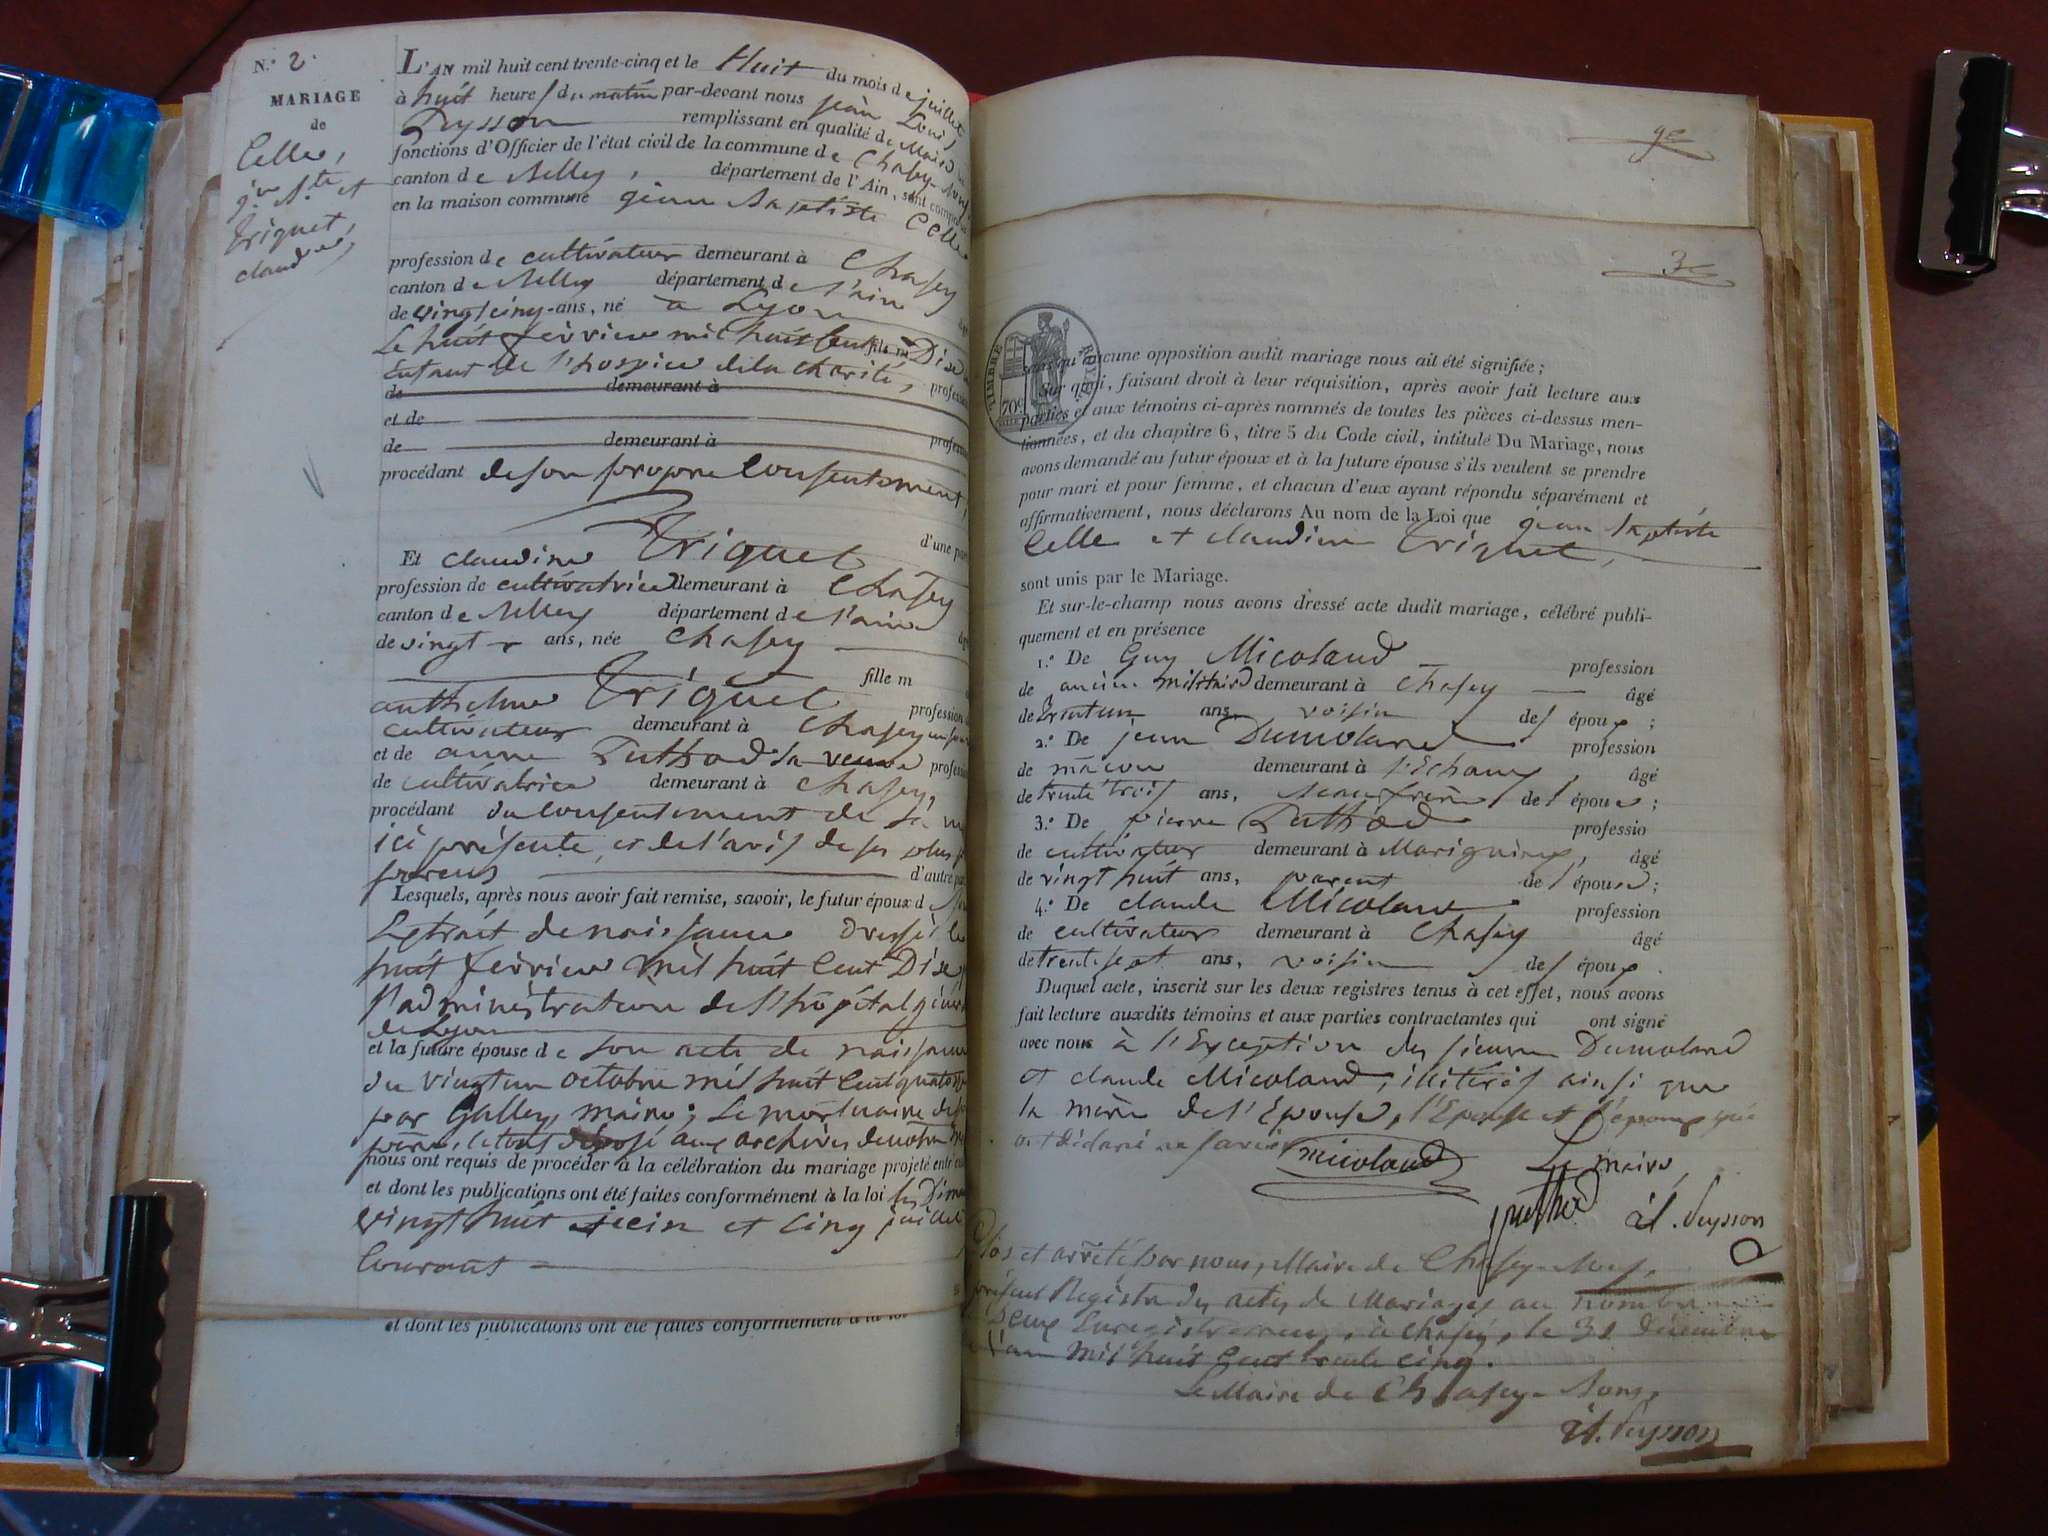 N.° 2.
MARIAGE
de
Celle,
j.n B.te et
Triquet,
claudine,
L'AN mil huit cent trente-cinq et le Huit du mois de juillet
à huit heures du matin par-devant nous jean Louis
Peysson remplissant en qualité de Maire
fonctions d'Officier de l'état civil de la commune de Chasey-Bons
canton de Belley, département de l'Ain, sont comparus
en la maison commune jean Baptiste Celle
profession de cultivateur demeurant à Chasey
canton de Belley département de l'ain
de vingt cinq ans, né à Lyon
Le huit fevrier mil huit Cent Dix fils m
Enfant de l'hospice de la charité, profession
de demeurant à
et de
de demeurant à profession
procédant de son propre Consentement,
d'une part
Et claudine Triquet
profession de cultivatrice demeurant à Chasey
canton de Belley département de l'ain
de vingt ans, née Chasey
fille m
anthelme Triquet profession
cultivateur demeurant à Chasey
et de anne Puthod sa veuve profession
de cultivatrice demeurant à Chasey,
procédant du Consentement de sa
ici présente, et de l'avis de ses plus
parens d'autre part
Lesquels, après nous avoir fait remise, savoir, le futur époux d
L'extrait de naissance Dressé le
huit fevrier mil huit Cent Dix
l'administration de l'hôpital
de Lyon
et la future épouse de son acte de naissance
du vingt un octobre mil huit Cent quatorze
par Galley, maire; Le mortuaire de son
père, le tout déposé aux archives de notre
nous ont requis de procéder à la célébration du mariage projeté entr'eux
et dont les publications ont été faites conformément à la loi les Dim
vingt huit juin et Cinq juillet
Courant
et dont les publications ont été faites conformément à la loi
2e
3e
TIMBRE ROYAL
70c
sans qu'aucune opposition audit mariage nous ait été signifiée;
Sur quoi, faisant droit à leur réquisition, après avoir fait lecture aux
parties et aux témoins ci-après nommés de toutes les pièces ci-dessus men-
tionnées, et du chapitre 6, titre 5 du Code civil, intitulé Du Mariage, nous
avons demandé au futur époux et à la future épouse s'ils veulent se prendre
pour mari et pour femme, et chacun d'eux ayant répondu séparément et
affirmativement, nous déclarons Au nom de la Loi que jean Baptiste
Celle et claudine Triquet,
sont unis par le Mariage.
Et sur-le-champ nous avons dressé acte dudit mariage, célébré publi-
quement et en présence
1.° De Guy Micoland profession
de ancien militaire demeurant à Chasey âgé
de Trente un ans, voisin des époux;
2.° De jean Dumoland profession
de maçon demeurant à , âgé
de trente trois ans, Beaufrère de l'épouse;
3.° De pierre Puthod professio
de cultivateur demeurant à Marignieu, âgé
de vingt huit ans, parent de l'épouse;
4.° De claude Micoland profession
de cultivateur demeurant à Chasey âgé
de trente sept ans, voisin des époux.
Duquel acte, inscrit sur les deux registres tenus à cet effet, nous avons
fait lecture auxdits témoins et aux parties contractantes qui ont signé
avec nous à l'Exception des sieurs Dumoland
et claude Micoland, illitérés ainsi que
la mère de l'Epouse, l'Epouse et l'époux qui
ont déclaré ne savoir
micoland
Le maire,
puthod
à l. Peysson
Clos et arrêté par nous, Maire de Chasey-Bons,
présent Registre des actes de Mariages au nombre
Deux Enregistremens, à Chasey, le 31 décembre
l'an mil huit Cent trente cinq.
Le Maire de Chasey-Bons,
à l. Peysson